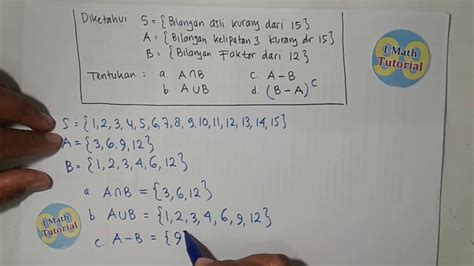 Diketahui S = {Bilangan asli kurang dari 15}
A = {Bilangan kelipatan 3 kurang dr 15}
B = {Bilangan Faktor dari 12}
Tentukan : a. A∩B c. A-B
b A∪B d. (B-A)^C
I-Math
Tutorial
S = {1,2,3,4,5,6,7,8,9,10,11,12,13,14,15}
A = {3,6,9,12}
B = {1,2,3,4,6,12}
a A∩B = {3,6,12}
b A∪B = {1,2,3,4,6,9,12}
c. A-B = {9
I-Math
Tutorial